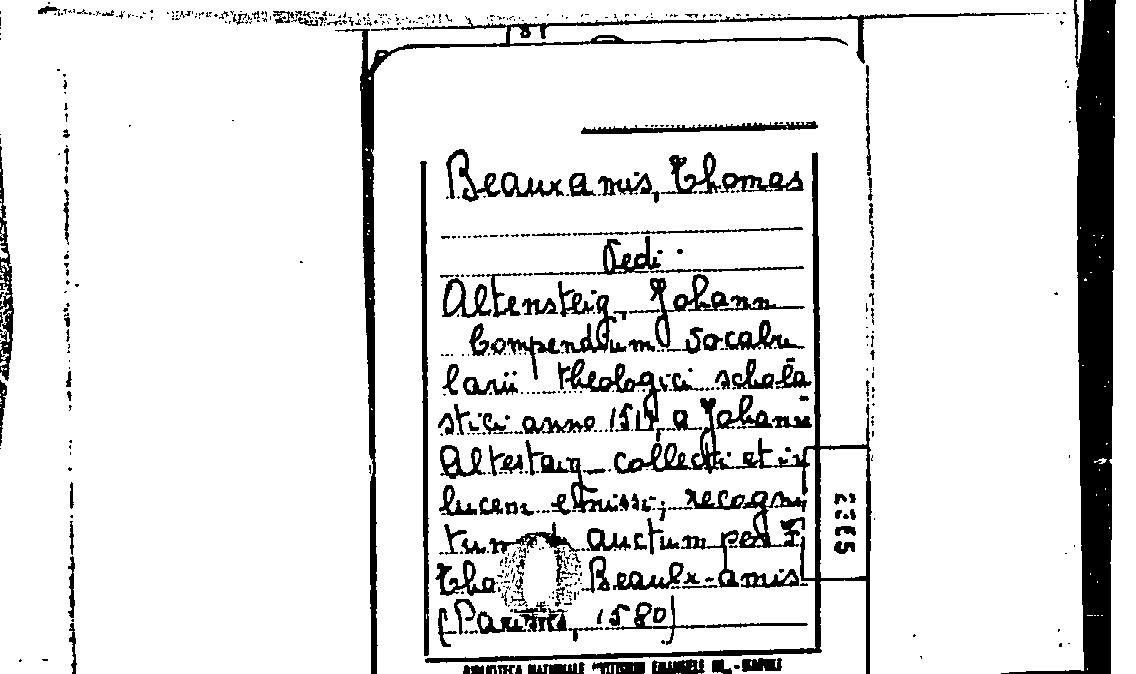 Beauxamis, Thomas
Vedi.
Altensteig, Johann
Compendium vocabu
larii theologici schola
stici anno 151 a Johanē
Altestaig collecti et in
lucem emissi; recogni
tum auctum per F.
Tho Beaulx-amis
(Parisiis, 1580)
BIBLIOTECA NAZIONALE "VITTORIO EMANUELE III" - NAPOLI